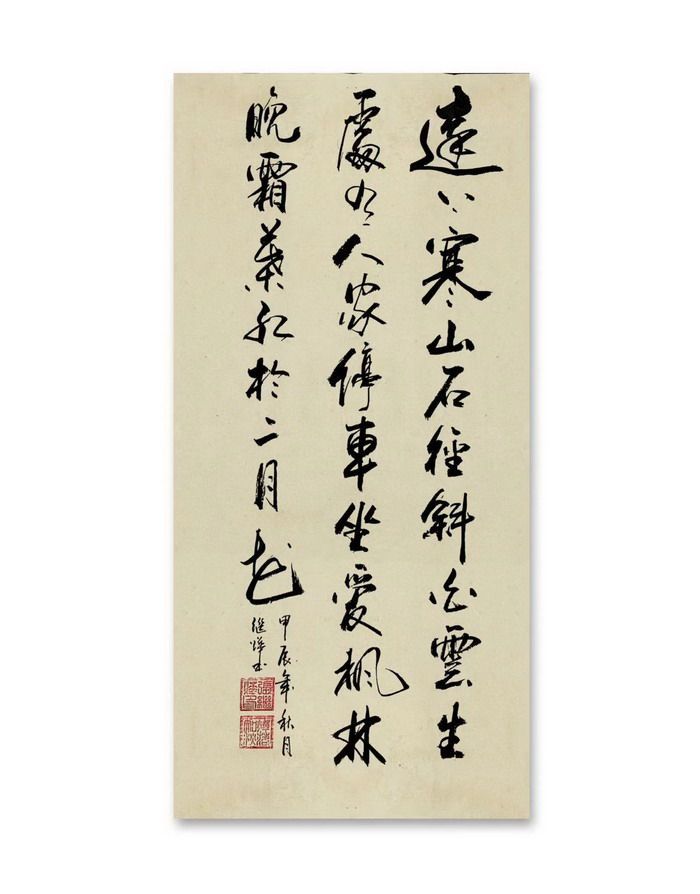 遠上寒山石徑斜白雲生
處有人家停車坐愛楓林
晚霜葉紅於二月花
甲辰年秋月
繼书